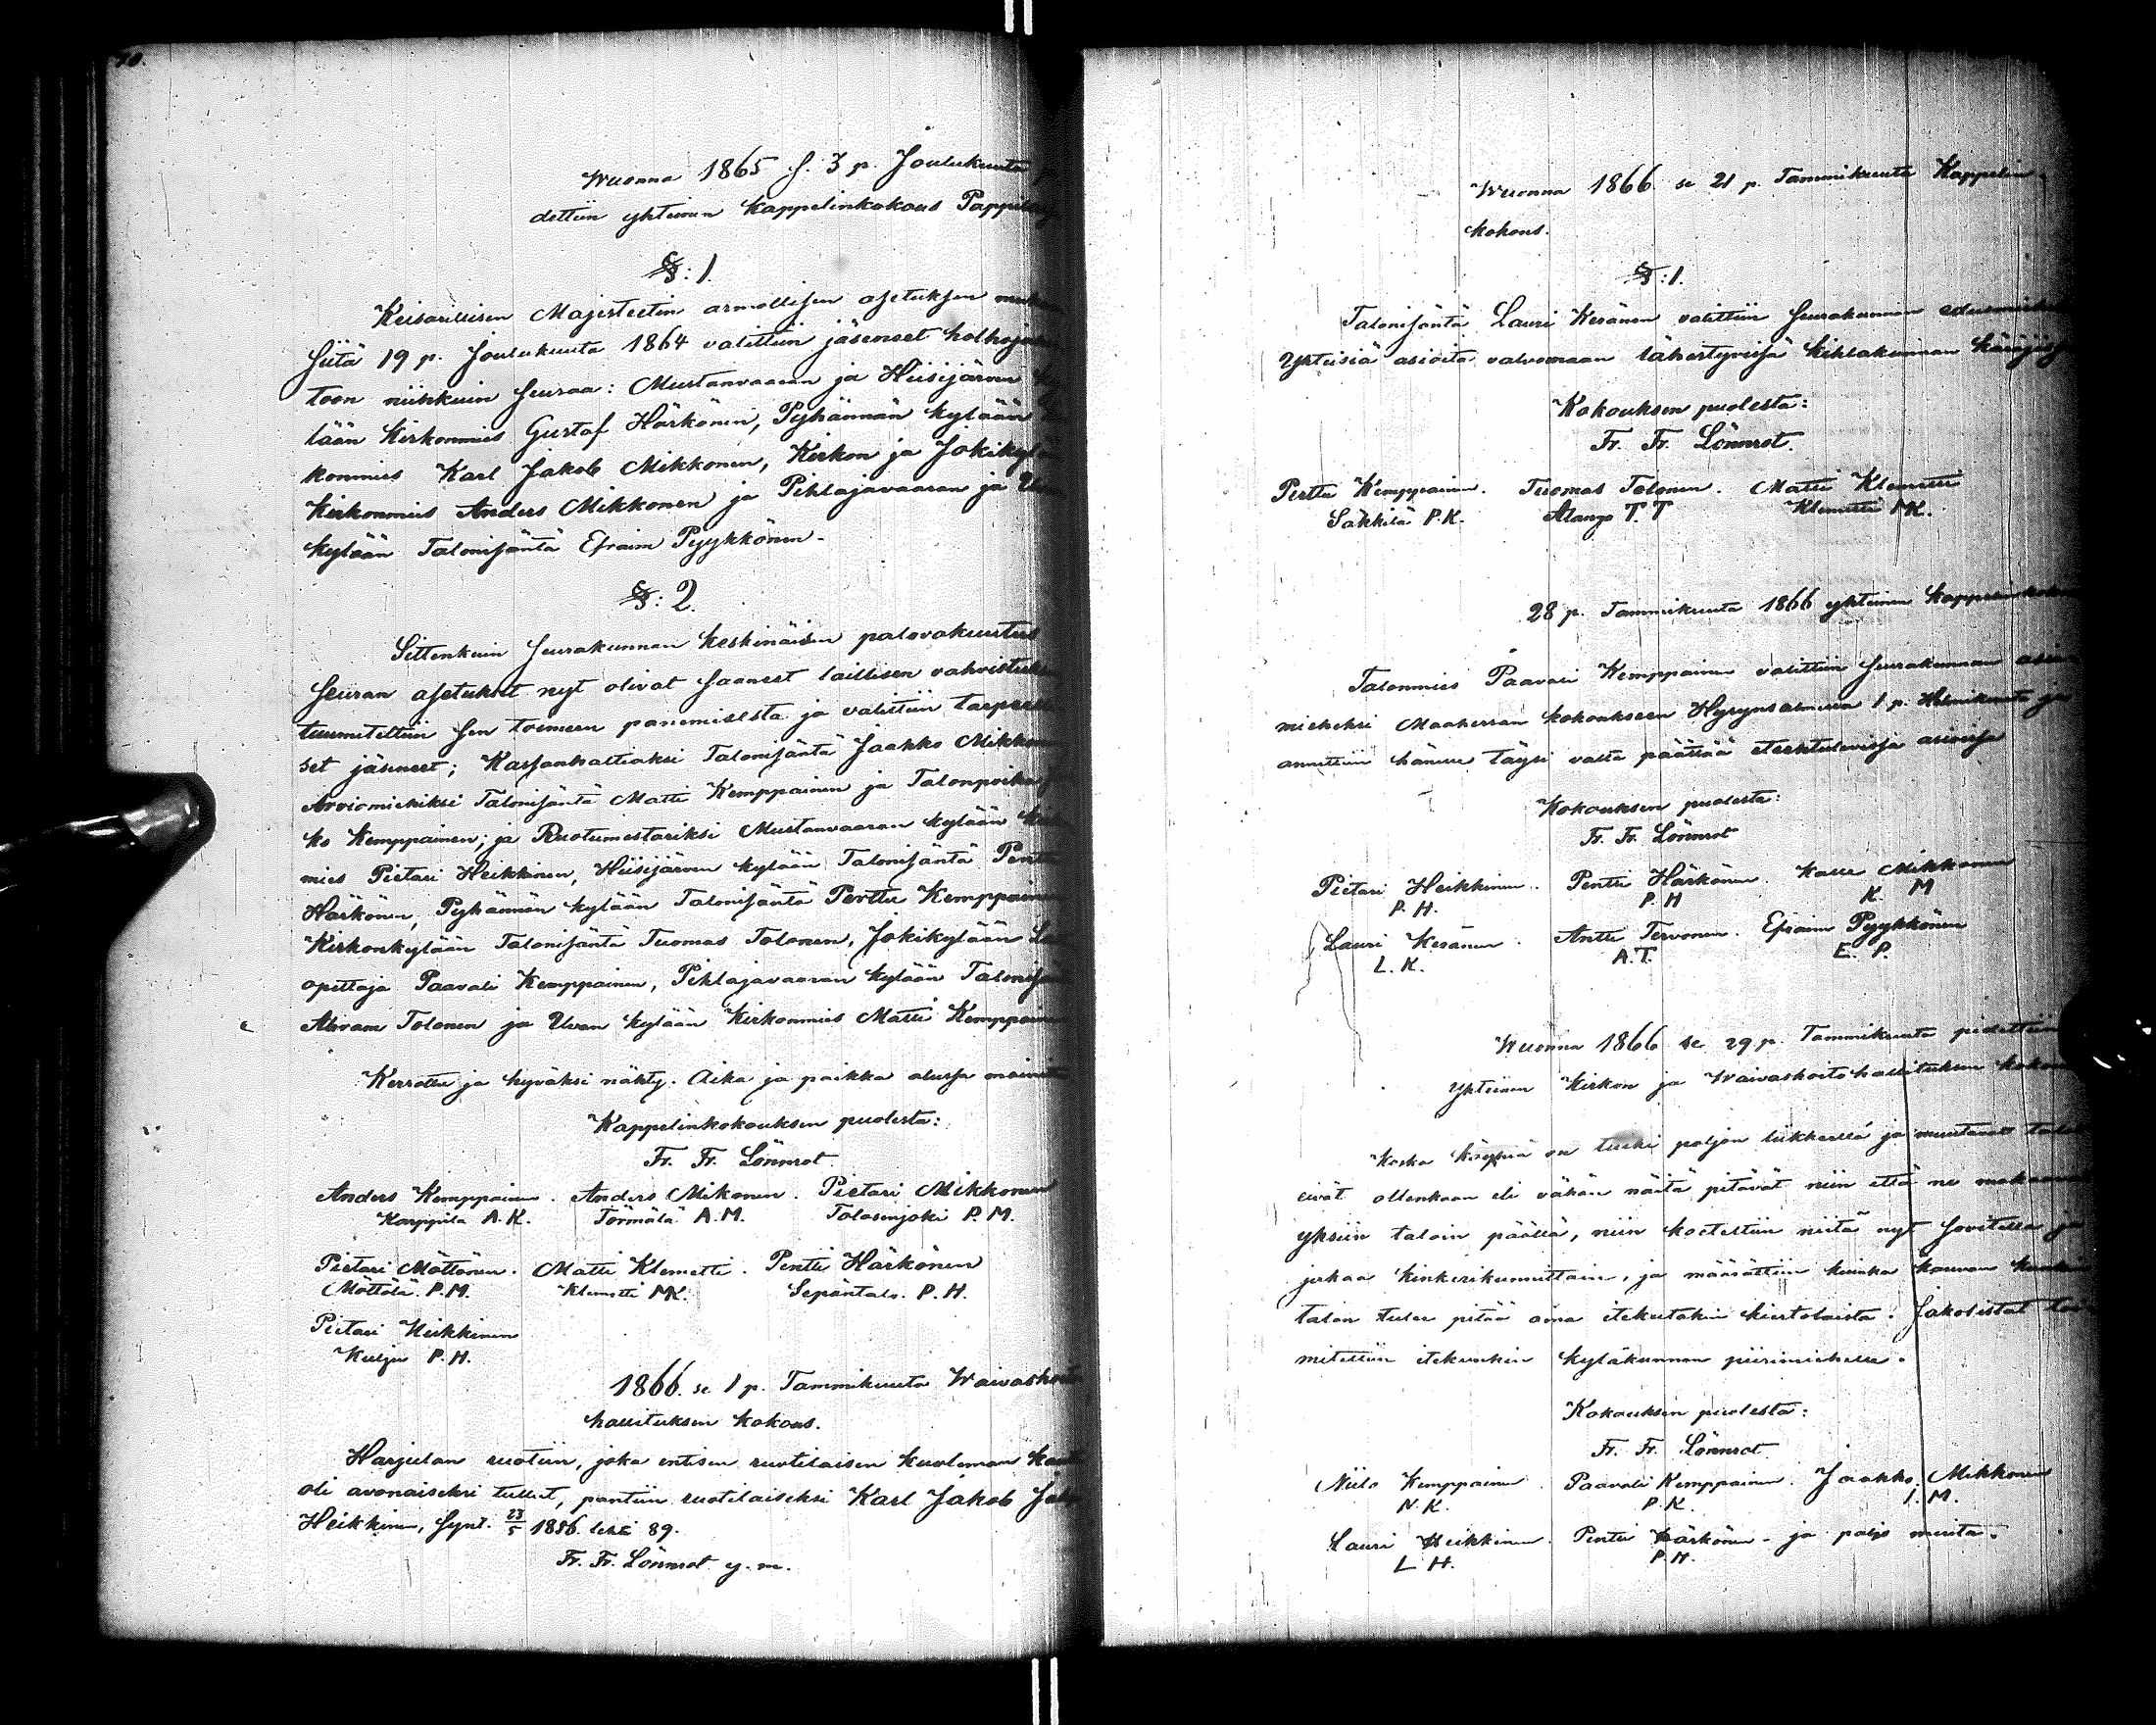 70.
Wuonna 1865 s. 3 p. Joulukuuta
dettiin yhteinen kappelinkokous
§: 1.
Keisarillisen Majesteetin armollisen asetuksen
siitä 19 p. Joulukuuta 1864 valittiin jäsenet
toon niinkuin seuraa: Mustanvaaran ja Hiisijärven
lään Kirkonmies Gustaf Härkönen, Pyhännän kylään
konmies Karl Jakob Mikkonen, Kirkon ja
Kirkonmies Anders Mikkonen ja Pihlajavaaran ja
kylään Talonisäntä Efraim Pyykkönen.
§: 2.
Sittenkuin seurakunnan keskinäisen palovakuutus
seuran asetukset nyt olivat saaneet laillisen
tuumiteltiin sen toimeen panemisesta ja valittiin
set jäsenet; Kassanhaltiaksi Talonisäntä Jaakko
Arviomiehiksi Talonisäntä Matti Kemppainen ja
ko Kemppainen; ja Ruotumestariksi Mustanvaaran kylään
mies Pietari Heikkinen, Hiisijärven kylään Talonisäntä Pentti
Härkönen, Pyhännän kylään Talonisäntä Perttu Kemppainen
Kirkonkylään Talonisäntä Tuomas Tolonen, Jokikylään
opettaja Paavali Kemppainen, Pihlajavaaran kylään
Abram Tolonen ja Uvan kylään Kirkonmies Matti Kemppainen
Kerrottu ja hyväksi nähty. Aika ja paikka alussa
Kappelinkokouksen puolesta:
Fr. Fr. Lönnrot.
Anders Kemppainen. Anders Mikonen. Pietari Mikkonen
Karppila A.K. Törmälä A.M. Tolosenjoki P.M.
Pietari Möttönen. Matti Klemetti. Pentti Härkönen
Möttölä P.M. Klemetti MK. Sepäntalo. P.H.
Pietari Heikkinen
Kuljus P.H.
1866. se 1 p. Tammikuuta
hallituksen kokous.
Harjulan ruotiin, joka entisen ruotilaisen kuoleman
oli avonaiseksi tullut, pantiin ruotilaiseksi Karl Jakob
Heikkinen, synt. 23/5 1856 lehti 89.
Fr. Fr. Lönnrot y. m.
Wuonna 1866 se 21 p. Tammikuuta Kappelin
kokous.
§: 1.
Talonisäntä Lauri Keränen valittiin seurakunnan
yhteisiä asioita valvomaan lähestyvissä kihlakunnan
Kokouksen puolesta:
Fr. Fr. Lönnrot.
Perttu Kemppainen. Tuomas Tolonen. Matti Klemetti
Säkkilä P.K. Alango T.T Klemetti MK.
28 p. Tammikuuta 1866 yhteinen
Talonmies Paavali Kemppainen valittiin seurakunnan
mieheksi Maaherran kokoukseen Hyrynsalmessa 1 p. Helmikuuta ja
annettiin hänelle täysi valta päättää eteentulevissa asioissa
Kokouksen puolesta:
Fr. Fr. Lönnrot
Pietari Heikkinen. Pentti Härkönen. Kalle Mikkonen
P.H. P.H K. M
Lauri Keränen. Antti Tervonen. Efraim Pyykkönen
L.K. A.T. E. P.
Wuonna 1866 se 29 p. Tammikuuta pidettiin
yhteinen Kirkon ja Waivashoitohallituksen
Koska köyhiä on tuiki paljon liikkeellä ja muutamat
eivät ollenkaan eli vähän näitä pitävät niin että ne
yksiin taloin päällä, niin koeteltiin niitä nyt sovitella ja
jakaa kinkerikunnittain, ja määrättiin kuinka kauvan
talon tulee pitää aina itekutakin kiertolaista. Jakolistat
mitettiin itekunkin kyläkunnan piirimiehelle.
Kokouksen puolesta:
Fr. Fr. Lönnrot
Niilo Kemppainen. Paavali Kemppainen. Jaakko Mikkonen
N.K. P.K. I. M.
Lauri Heikkinen. Pentti Härkönen - ja paljo muita.
L H. P.H.